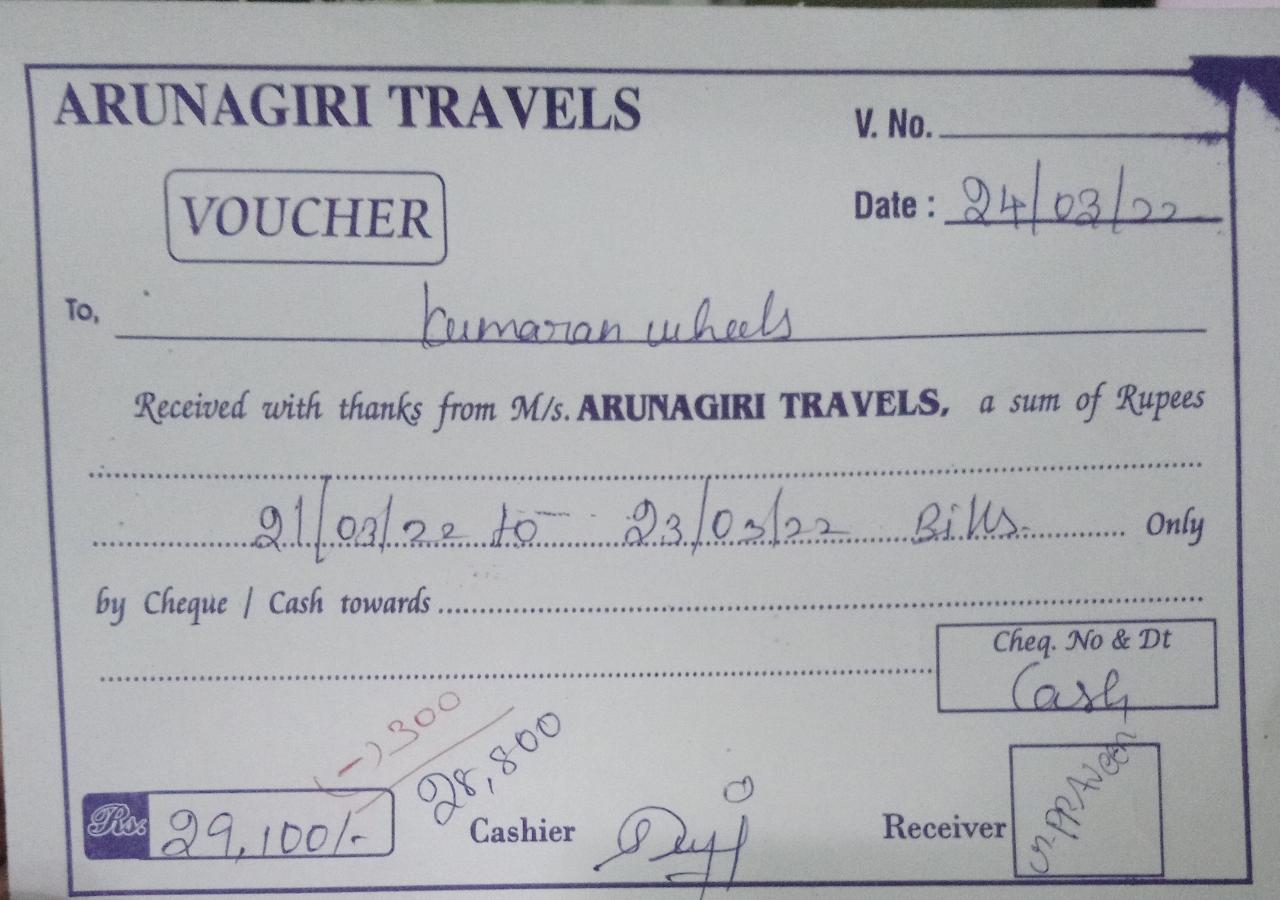 ARUNAGIRI TRAVELS
V. No.
VOUCHER
Date : 24/03/22
To, Kumaran wheels
Received with thanks from M/s. ARUNAGIRI TRAVELS, a sum of Rupees
21/03/22 to 23/03/22 Bills. Only
by Cheque / Cash towards
Cheq. No & Dt
Cash
(-) 300
28,800
Rs. 29,100/-
Cashier
Receiver